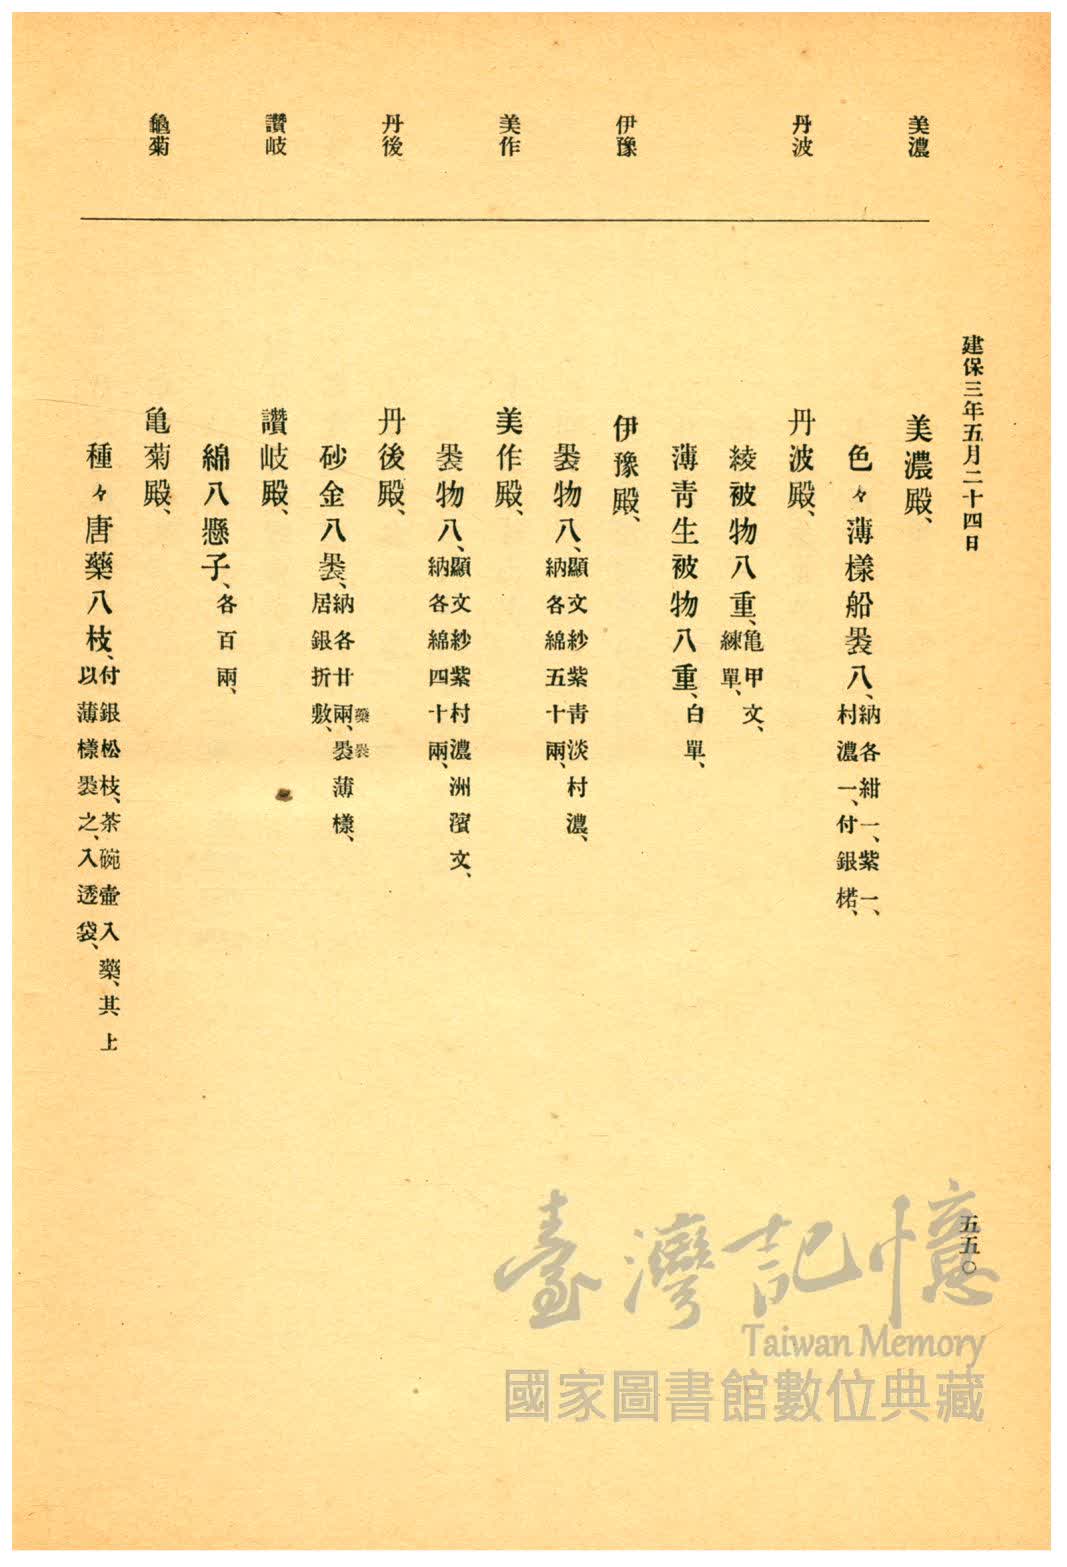 建保三年五月二十四日
五五〇
美濃
丹波
伊豫
美作
丹後
讚岐
龜菊
美濃殿、
色々薄樣船褁八、納各紺一、紫一、
村濃一、付銀楉、
丹波殿、
綾被物八重、亀甲文、
練單、
薄靑生被物八重、白單、
伊豫殿、
褁物八、顯文紗紫靑淡村濃、
納各綿五十兩、
美作殿、
褁物八、顯文紗紫村濃洲濱文、
納各綿四十兩、
丹後殿、
砂金八褁、納各廿兩、褁薄樣、
藥褁
居銀折敷、
讚岐殿、
綿八懸子、各百兩、
亀菊殿、
種々唐藥八枝、付銀松枝、茶碗壷入藥、其上
以薄樣褁之、入透袋、
臺灣記憶
Taiwan Memory
國家圖書館數位典藏